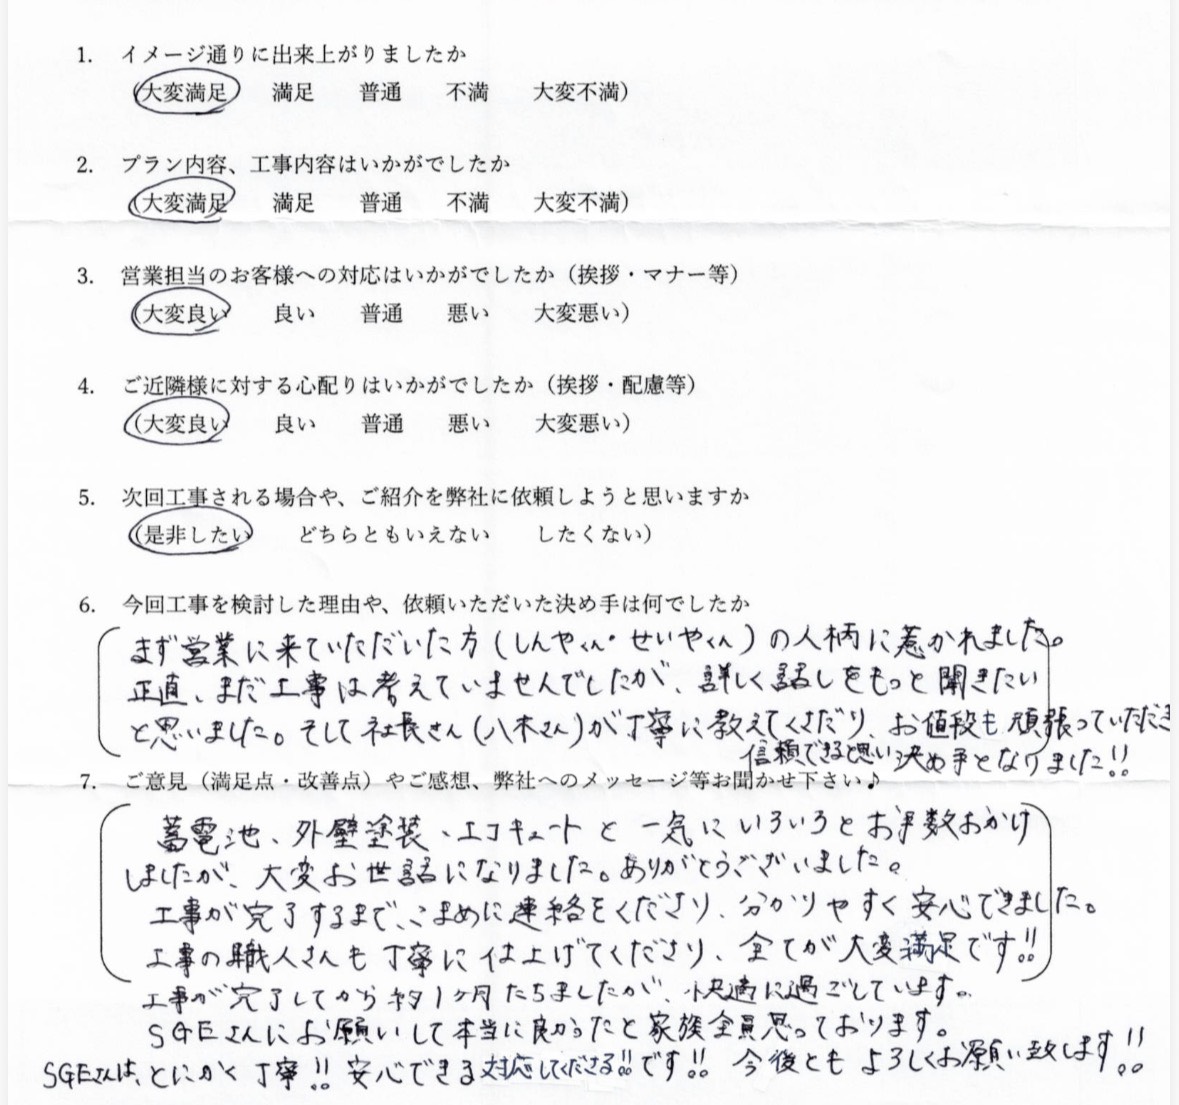 1. イメージ通りに出来上がりましたか
(大変満足 満足 普通 不満 大変不満)
2. プラン内容、工事内容はいかがでしたか
(大変満足 満足 普通 不満 大変不満)
3. 営業担当のお客様への対応はいかがでしたか（挨拶・マナー等）
(大変良い 良い 普通 悪い 大変悪い)
4. ご近隣様に対する心配りはいかがでしたか（挨拶・配慮等）
(大変良い 良い 普通 悪い 大変悪い)
5. 次回工事される場合や、ご紹介を弊社に依頼しようと思いますか
(是非したい どちらともいえない したくない)
6. 今回工事を検討した理由や、依頼いただいた決め手は何でしたか
まず営業に来ていただいた方(しんやくん・せいやくん)の人柄に惹かれました。
正直、まだ工事は考えていませんでしたが、詳しく話しをもっと聞きたい
と思いました。そして社長さん(八木さん)が丁寧に教えてくださり、お値段も頑張っていただき
信頼できると思い決め手となりました!!
7. ご意見（満足点・改善点）やご感想、弊社へのメッセージ等お聞かせ下さい♪
蓄電池、外壁塗装、エコキュートと一気にいろいろとお手数おかけ
しましたが、大変お世話になりました。ありがとうございました。
工事が完了するまで、こまめに連絡をくださり、分かりやすく安心できました。
工事の職人さんも丁寧に仕上げてくださり、全てが大変満足です!!
工事が完了してから約1ヶ月たちましたが、快適に過ごしています。
SGEさんにお願いして本当に良かったと家族全員思っております。
SGEさんは、とにかく丁寧!!安心できる対応してくださる!!です!!今後ともよろしくお願い致します!!